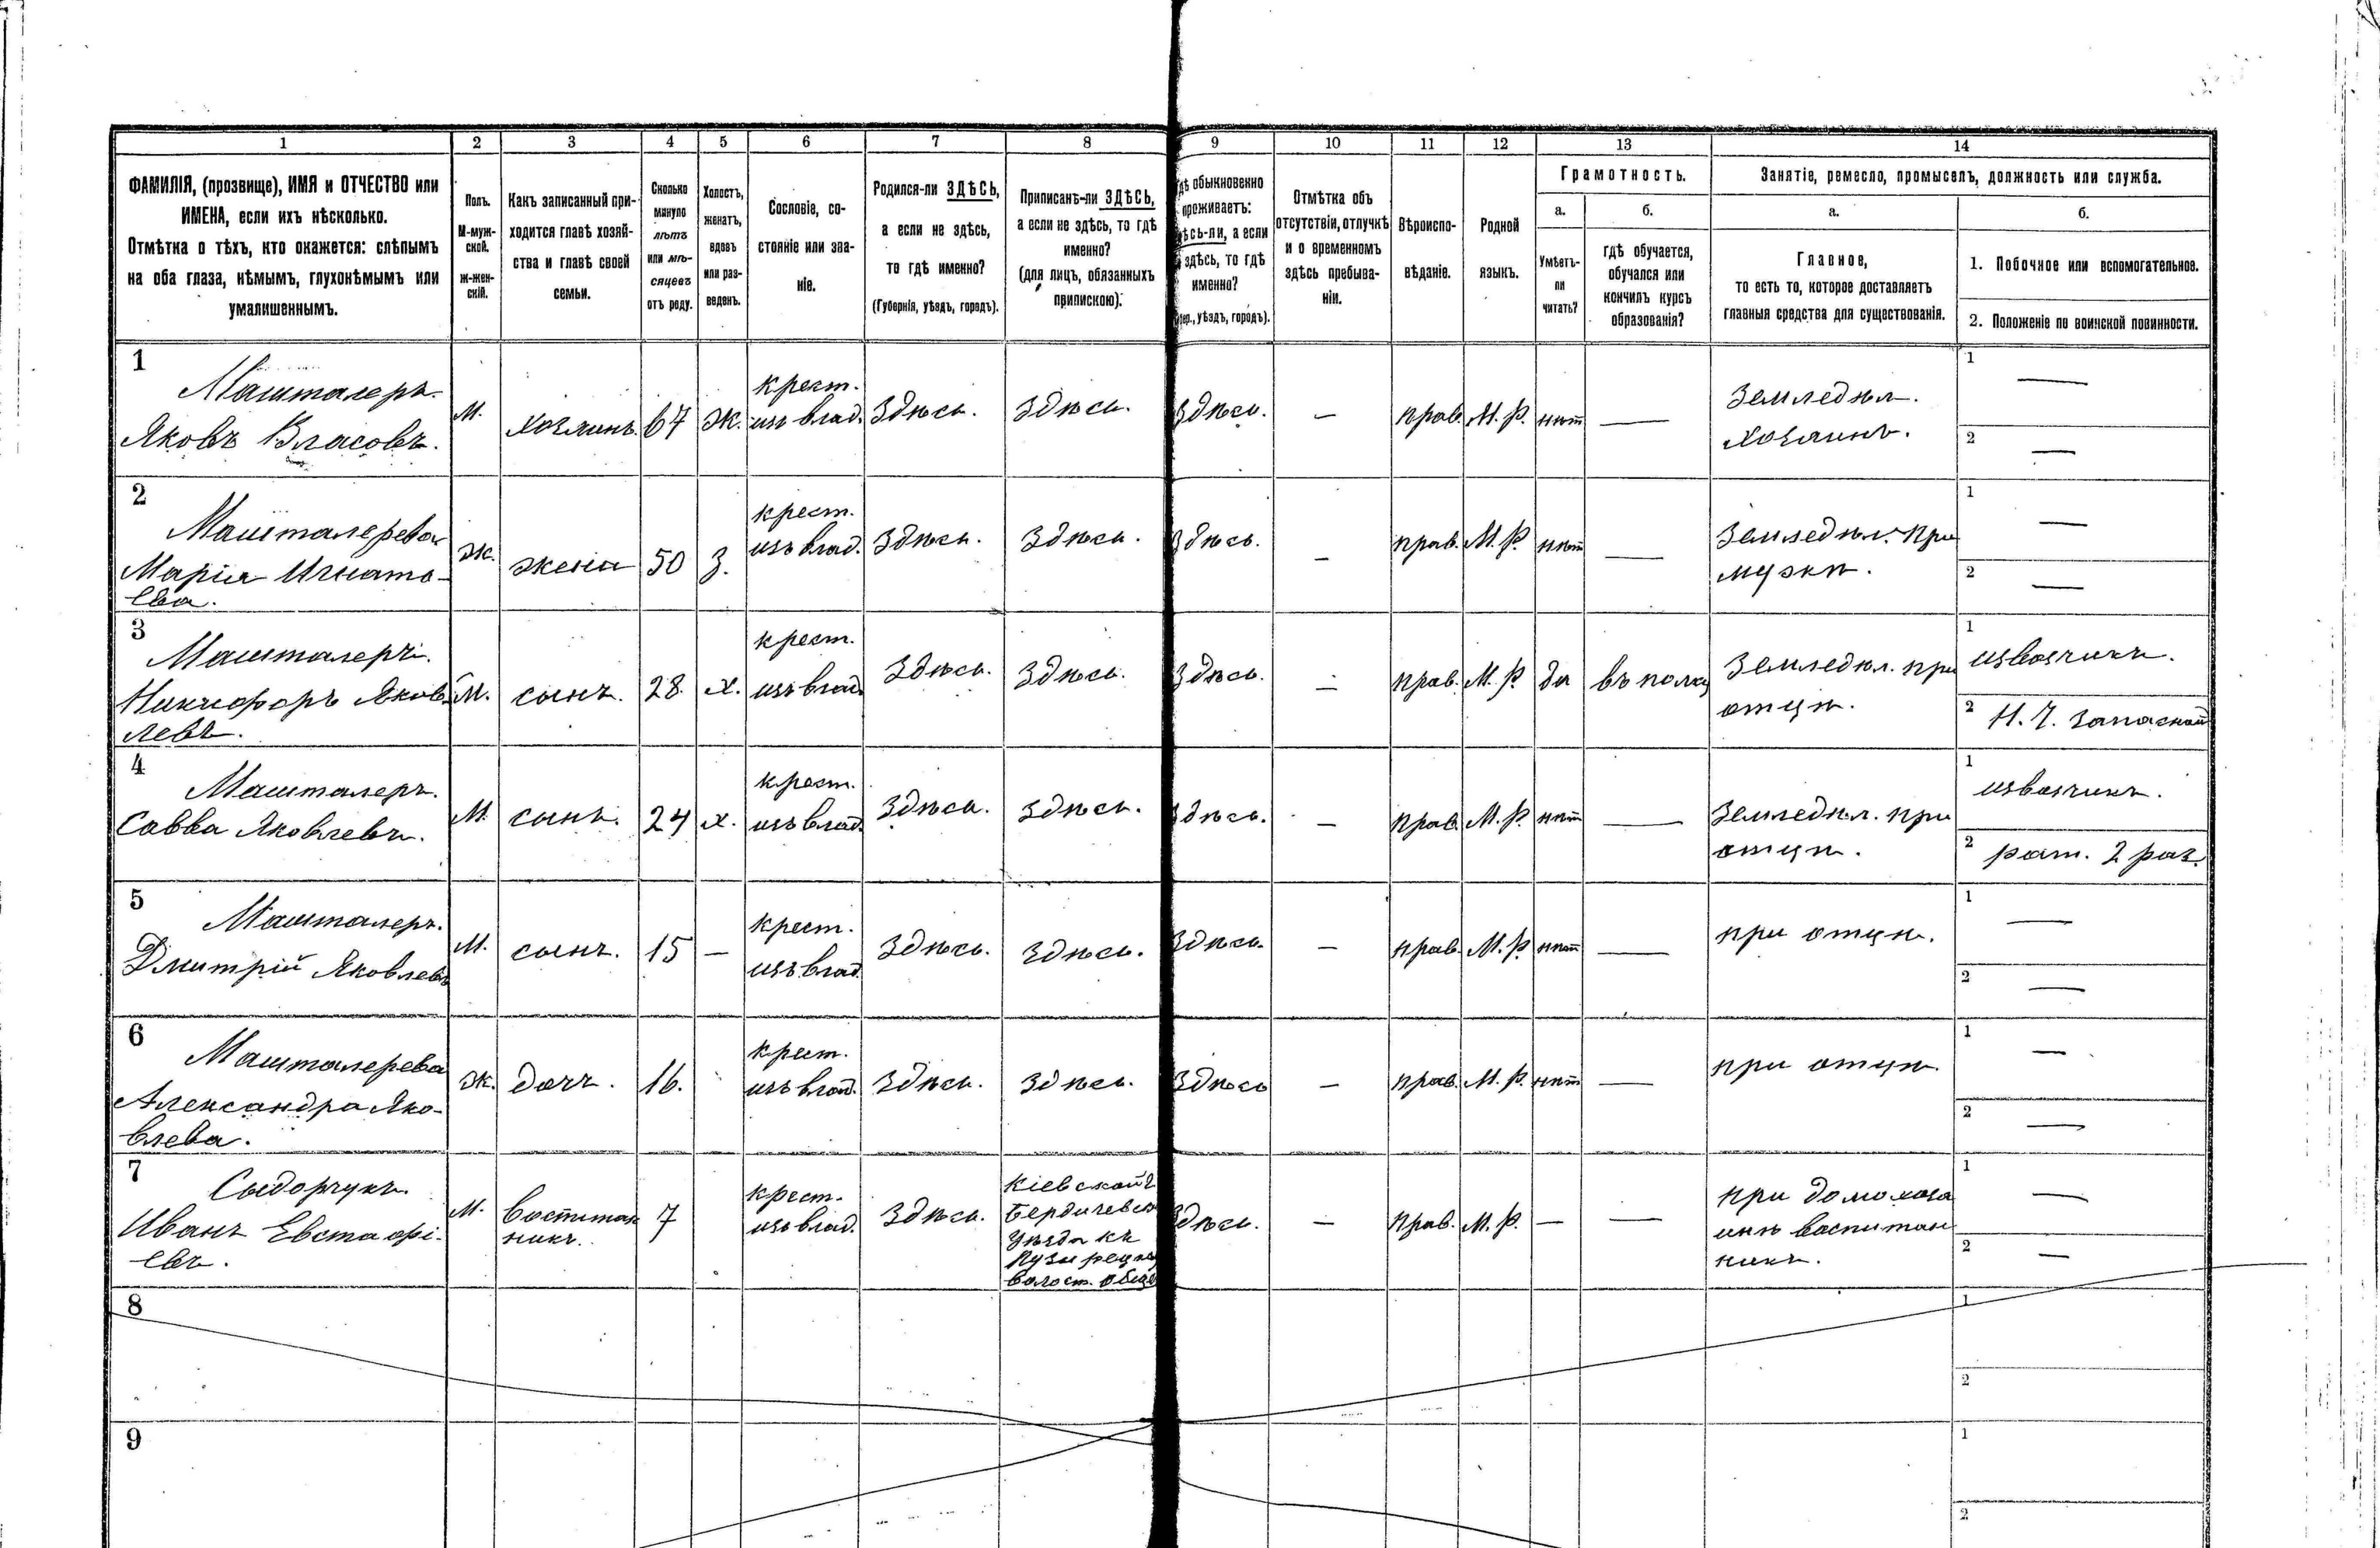 1 2 3 4 5 6 7 8 9 10 11 12 13 14
ФАМИЛІЯ, (прозвище), ИМЯ и ОТЧЕСТВО или
ИМЕНА, если ихъ нѣсколько.
Отмѣтка о тѣхъ, кто окажется: слѣпымъ
на оба глаза, нѣмымъ, глухонѣмымъ или
умалишеннымъ.
Полъ.
М-муж-
ской.
Ж-жен-
скій.
Какъ записанный при-
ходится главѣ хозяй-
ства и главѣ своей
семьи.
Сколько
минуло
лѣтъ
или мѣ-
сяцевъ
отъ роду.
Холостъ,
женатъ,
вдовъ
или раз-
веденъ.
Сословіе, со-
стояніе или зва-
ніе.
Родился-ли ЗДѢСЬ,
а если не здѣсь,
то гдѣ именно?
(Губернія, уѣздъ, городъ).
Приписанъ-ли ЗДѢСЬ,
а если не здѣсь, то гдѣ
именно?
(для лицъ, обязанныхъ
припискою).
обыкновенно
проживаетъ:
а если
здѣсь, то гдѣ
именно?
уѣздъ, городъ).
Отмѣтка объ
отсутствіи, отлучкѣ
и о временномъ
здѣсь пребыва-
ніи.
Вѣроиспо-
вѣданіе.
Родной
языкъ.
Грамотность.
а.
Умѣетъ-
ли
читать?
б.
гдѣ обучается,
обучался или
кончилъ курсъ
образованія?
Занятіе, ремесло, промыселъ, должность или служба.
а.
Главное,
то есть то, которое доставляетъ
главныя средства для существованія.
б.
1. Побочное или вспомогательное.
2. Положеніе по воинской повинности.
1
Машталеръ.
Яковъ Власовъ.
М.
хозяинъ.
67
Ж.
крест.
изъ влад.
Здѣсь.
Здѣсь.
Здѣсь.
—
прав.
М. Р.
нѣт
—
Земледѣл.
Хозяинъ.
1 —
2 —
2
Машталерева
Марія Игнато-
ева.
Ж.
жена
50
З.
крест.
изъ влад.
Здѣсь.
Здѣсь.
Здѣсь.
—
прав.
М. Р.
нѣт
—
Земледѣл. при
мужѣ.
1 —
2 —
3
Машталеръ.
Никифоръ Яков-
левъ.
М.
сынъ.
28.
х.
крест.
изъ влад.
Здѣсь.
Здѣсь.
Здѣсь.
—
прав.
М. Р.
да
въ полку
Земледѣл. при
отцѣ.
1 извозчикъ.
2 Н. Ч. запасной
4
Машталеръ.
Савва Яковлевъ.
М.
сынъ.
24
х.
крест.
изъ влад.
Здѣсь.
Здѣсь.
Здѣсь.
—
прав.
М. Р.
нѣт
—
Земледѣл. при
отцѣ.
1 извозчикъ.
2 рат. 2 раз.
5
Машталеръ.
Дмитрій Яковлевъ
М.
сынъ.
15
—
крест.
изъ влад.
Здѣсь.
Здѣсь.
Здѣсь.
—
прав.
М. Р.
нѣт
—
при отцѣ.
1 —
2 —
6
Машталерева
Александра Яко-
влева.
Ж.
дочь.
16.
крест.
изъ влад.
Здѣсь.
Здѣсь.
Здѣсь
—
прав.
М. Р.
нѣт
—
при отцѣ.
1 —
2 —
7
Сыдорчукъ.
Иванъ Евстафі-
евъ.
М.
воспитан
никъ.
7
крест.
изъ влад.
Здѣсь.
Кіевской г
Бердичевск
Уѣзда къ
волост. общ
Здѣсь.
—
прав.
М. Р.
—
—
при домохозя
инѣ воспитан
никъ.
1 —
2 —
8
1
2
9
1
2